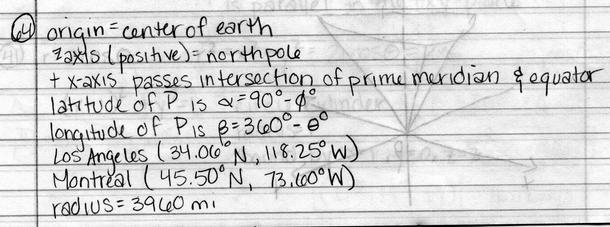 64) origin = center of earth
z axis (positive) = north pole
+ x-axis passes intersection of prime meridian & equator
latitude of P is α = 90° - ϕ°
longitude of P is β = 360° - θ°
Los Angeles (34.06° N, 118.25° W)
Montréal (45.50° N, 73.60° W)
radius = 3960 mi